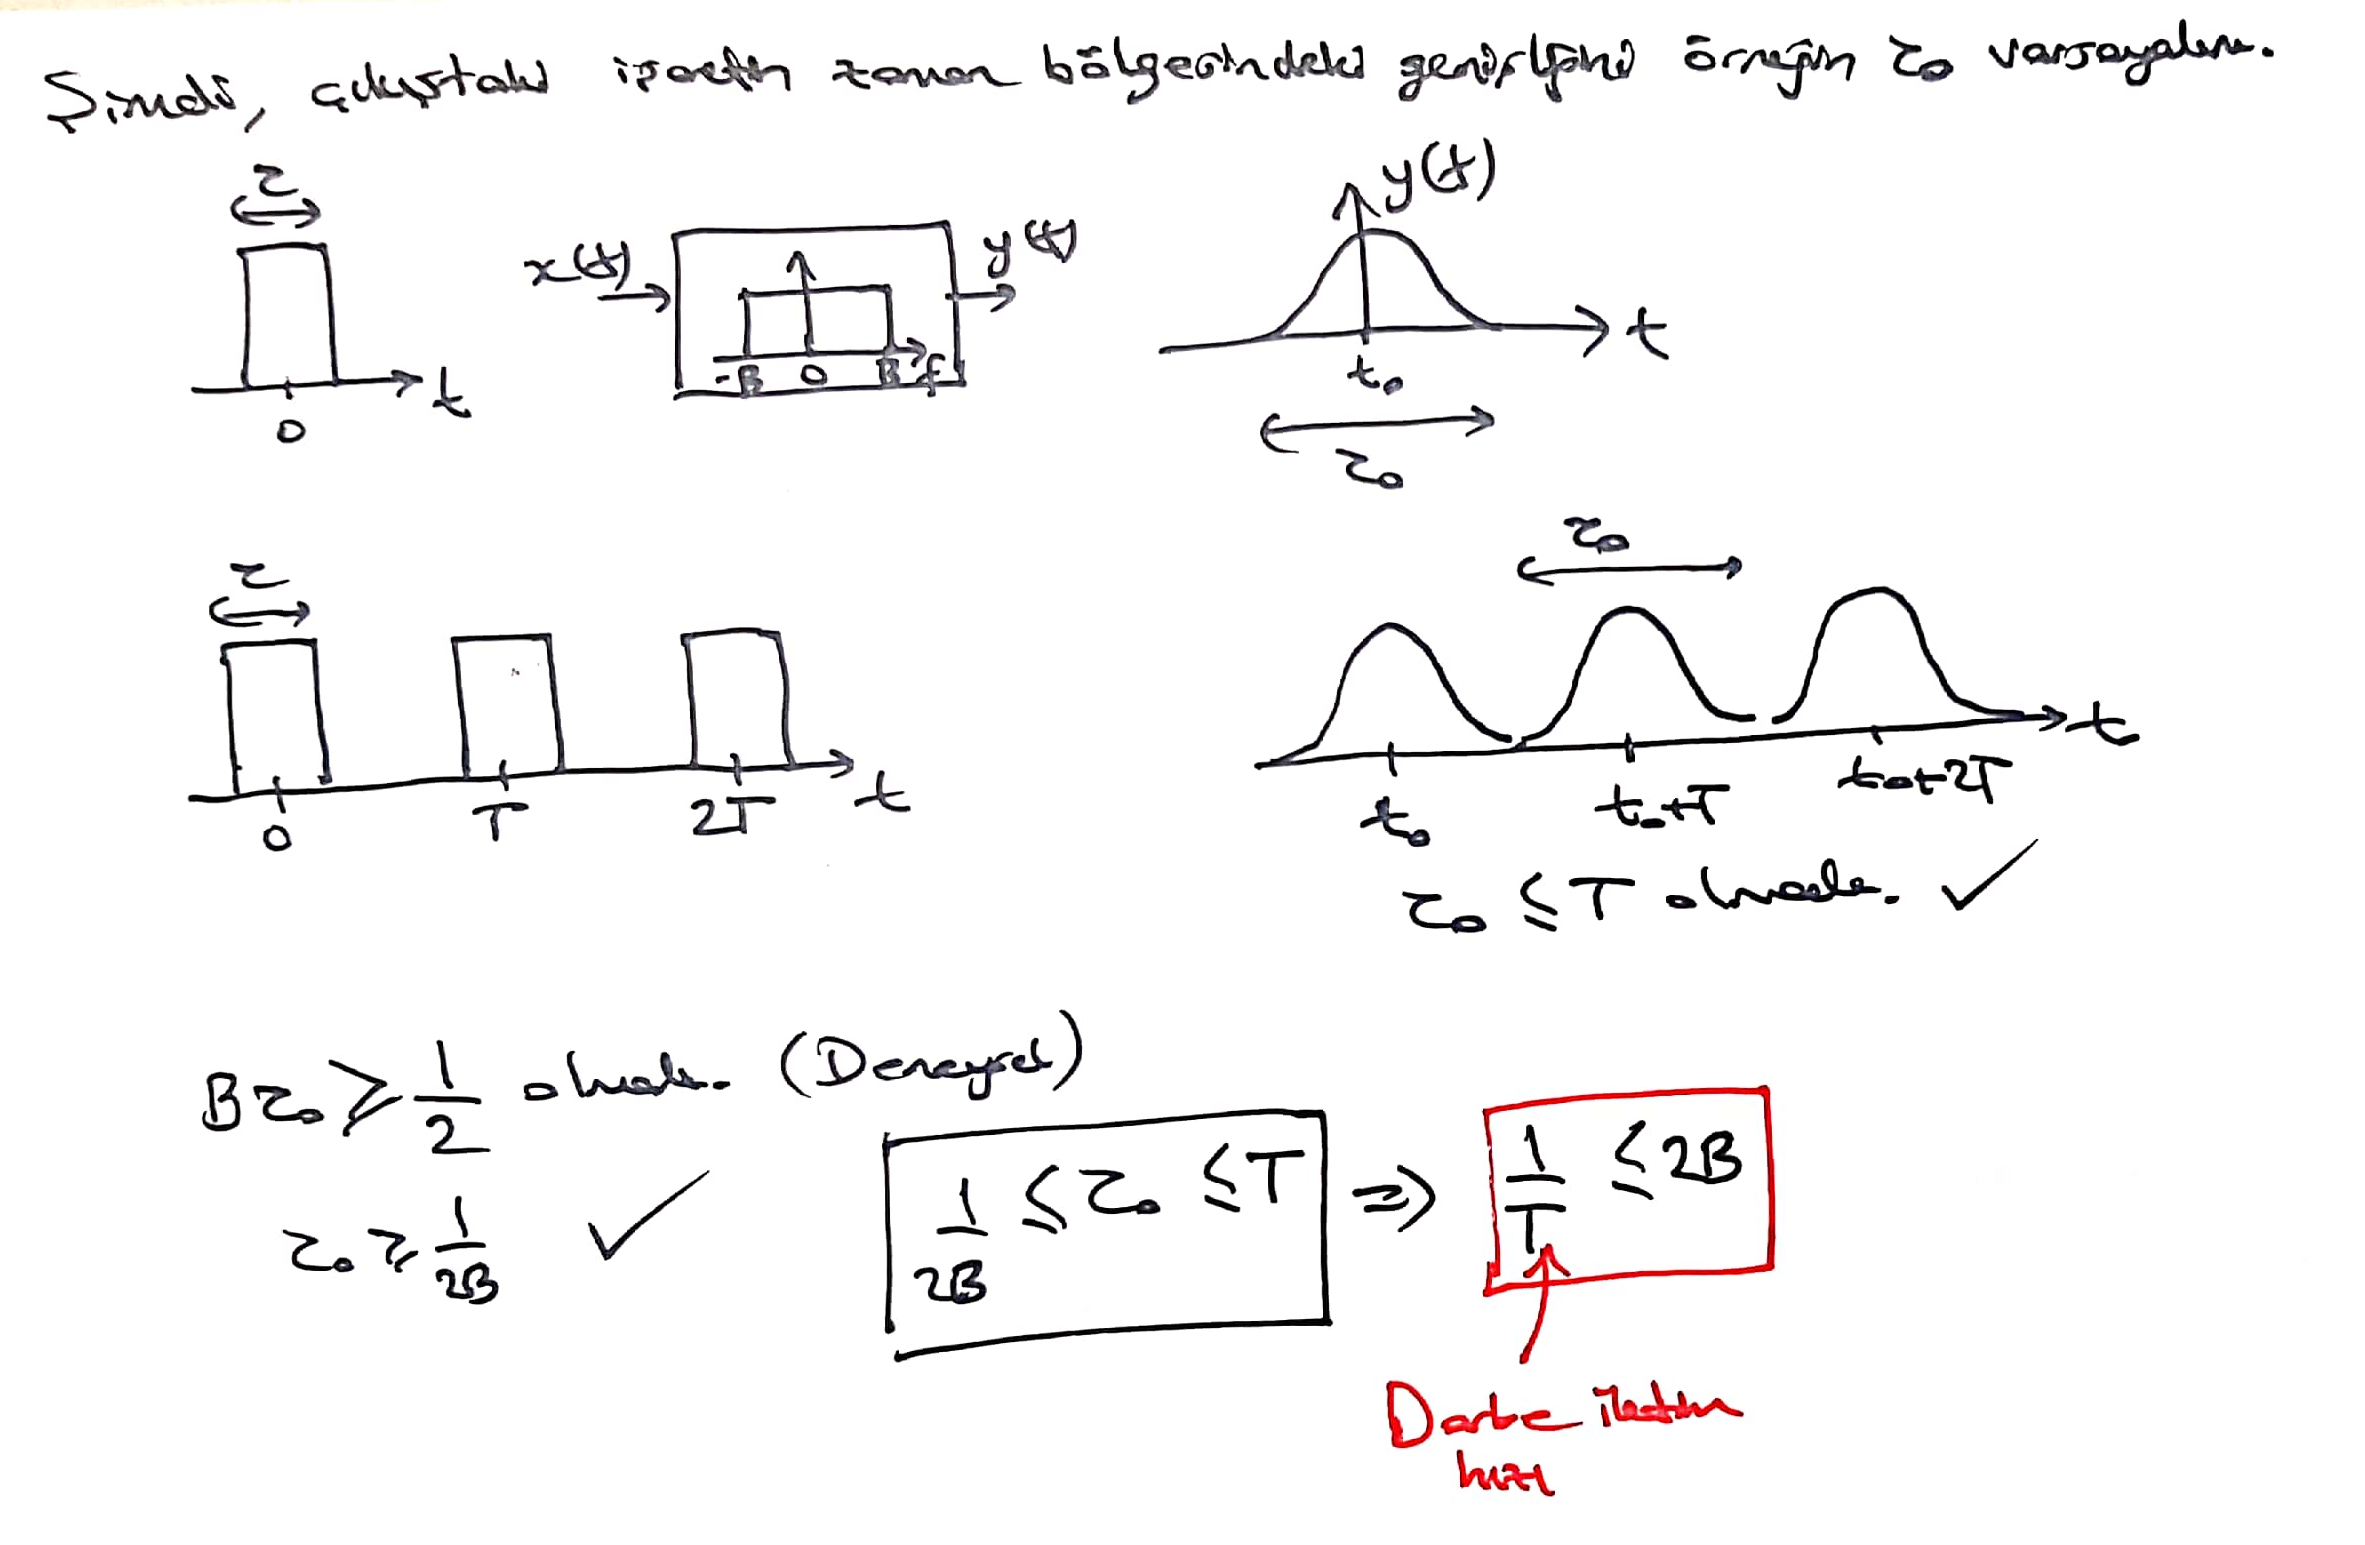 Şimdi, çıkıştaki işaretin zaman bölgesindeki genişliğini örneğin τ₀ varsayalım.
τ
t
0
x(t)
-B 0 B f
y(t)
y(t)
t
t₀
τ₀
τ
0 T 2T t
τ₀
t
t₀ t₀+T t₀+2T
τ₀ ≤ T olmalı. ✓
Bτ₀ ≥ 1/2 olmalı. (Deneysel)
τ₀ ≥ 1/2B ✓
1/2B ≤ τ₀ ≤ T ⇒ 1/T ≤ 2B
Darbe iletim
hızı